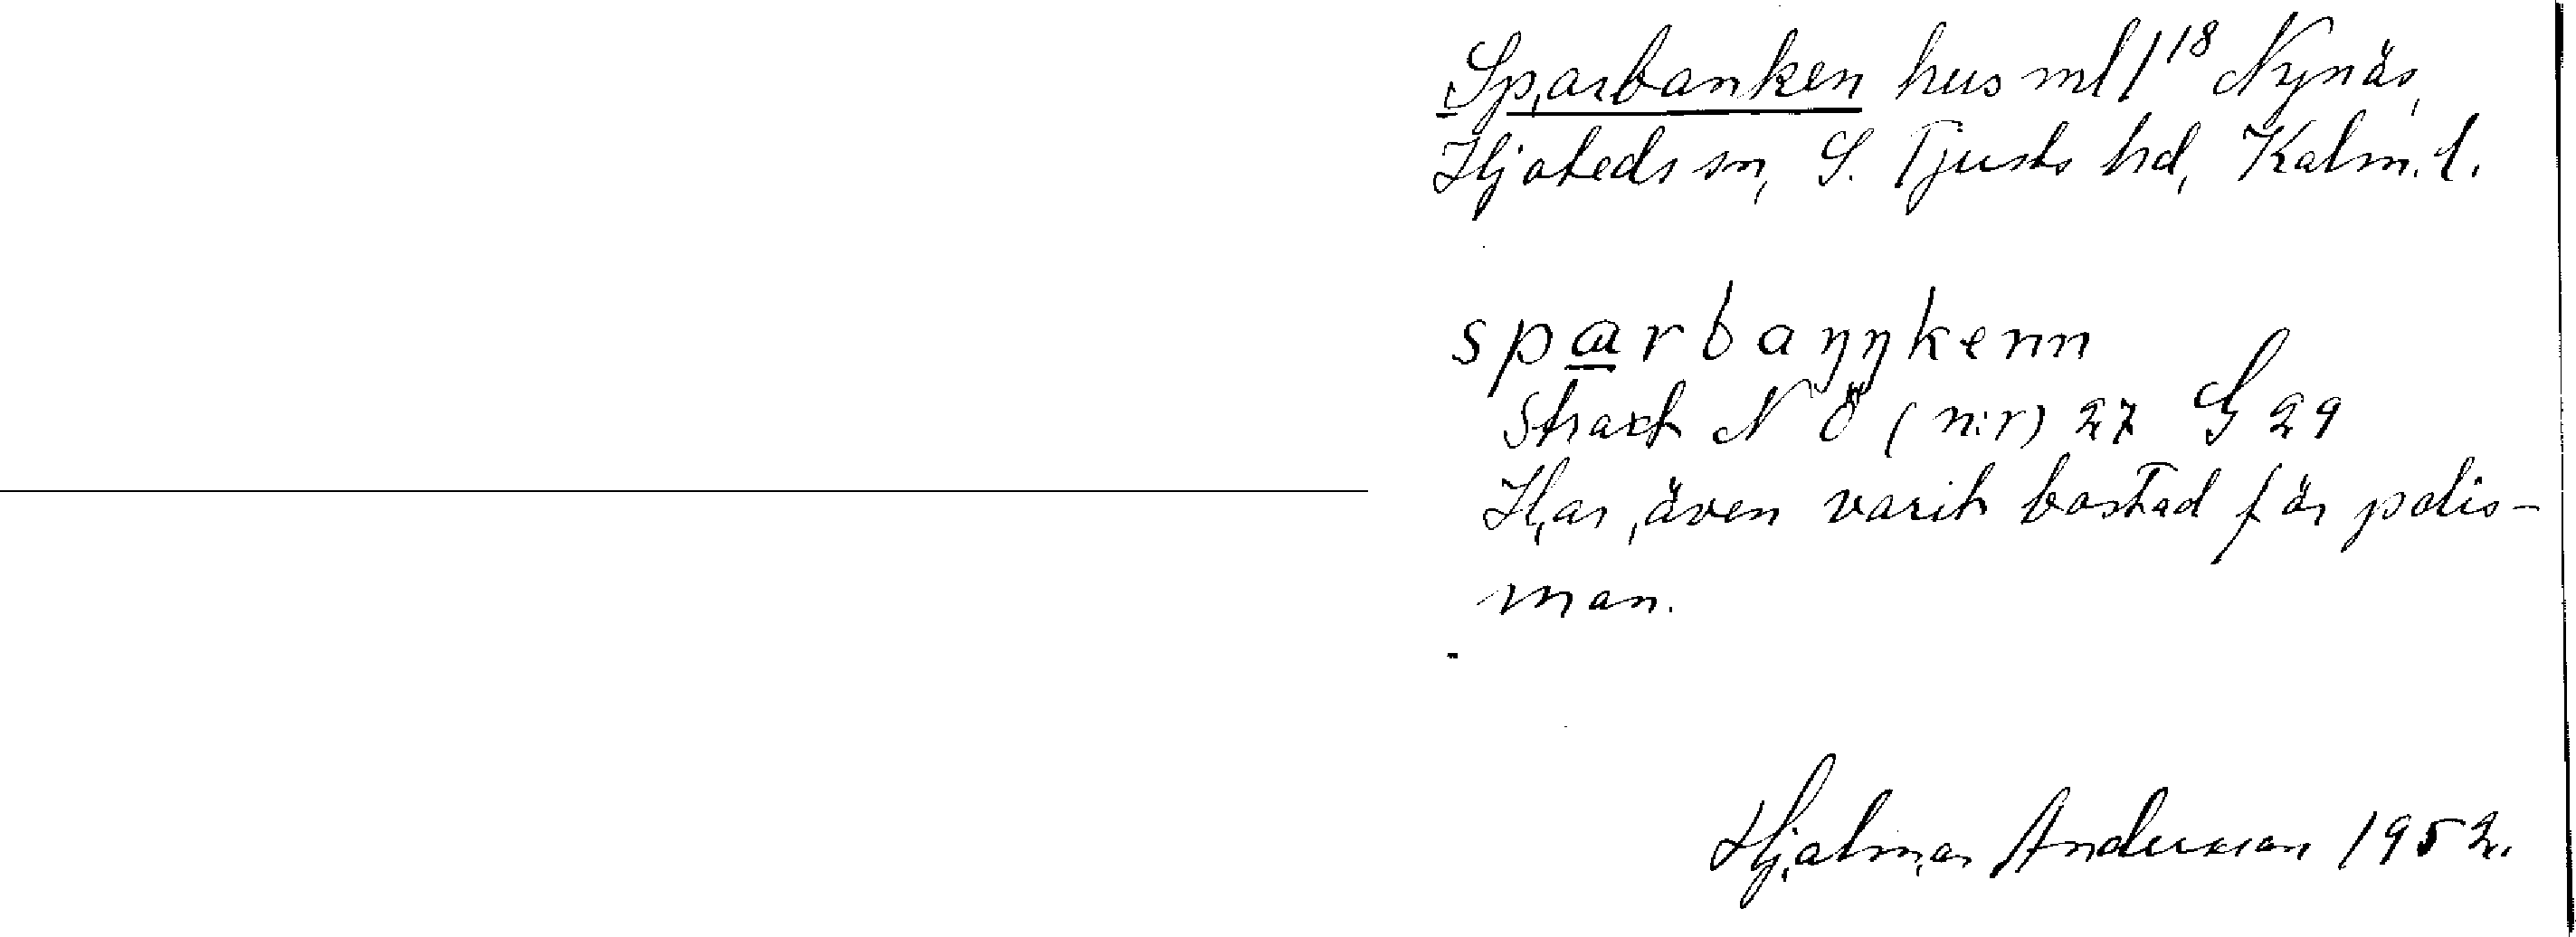 Sparbanken hus ml 1¹⁸ Nynäs,
Hjorteds sn, S. Tjusts hd, Kalm. l.
sparbaŋŋkenn
Strax NÖ (n:r) 27 G 29
Har även varit bostad för polis-
man.
Hjalmar Andersson 1952.